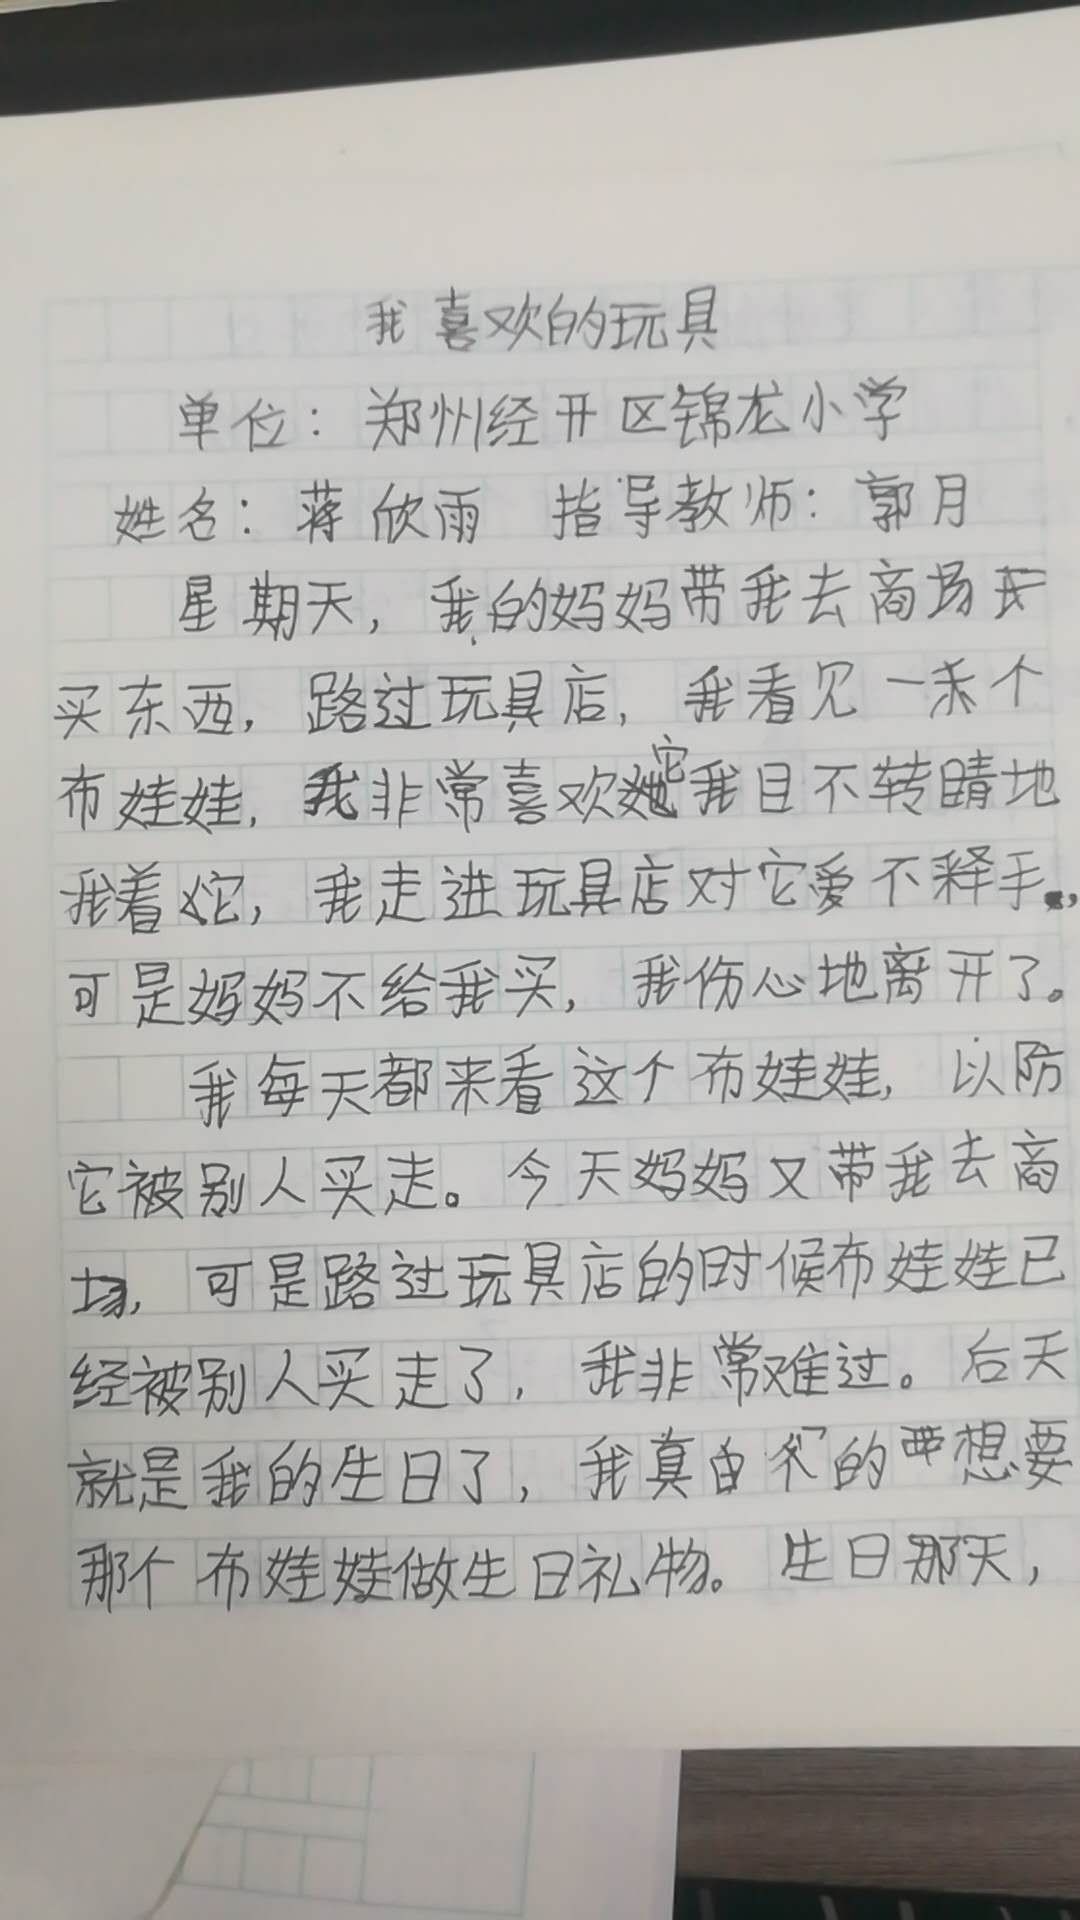 我喜欢的玩具
单位：郑州经开区锦龙小学
姓名：蒋欣雨 指导教师：郭月
星期天，我的妈妈带我去商场
买东西，路过玩具店，我看见一个
布娃娃，我非常喜欢它我目不转睛地
我着它，我走进玩具店对它爱不释手，
可是妈妈不给我买，我伤心地离开了。
我每天都来看这个布娃娃，以防
它被别人买走。今天妈妈又带我去商
场，可是路过玩具店的时候布娃娃已
经被别人买走了，我非常难过。后天
就是我的生日了，我真的想要
那个布娃娃做生日礼物。生日那天，